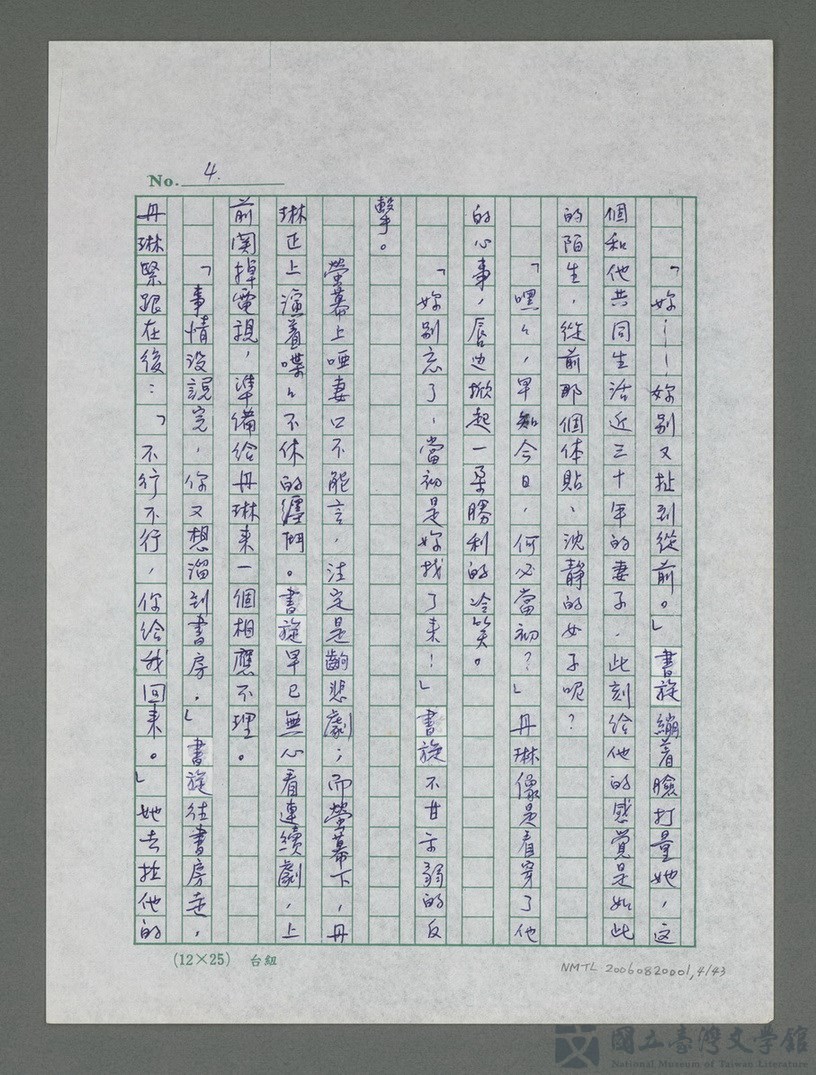 No. 4.
「妳——妳别又扯到從前。」書旋繃着臉打量她，这
個和他共同生活近三十年的妻子，此刻给他的感覚是如此
的陌生，從前那個体貼、沈静的女子呢？
「嘿々，早知今日，何必當初？」丹琳像是看穿了他
的心事，唇边掀起一朵勝利的冷笑。
「妳别忘了，當初是妳找了来！」書旋不甘示弱的反
擊。
螢幕上啞妻口不能言，注定是齣悲劇；而螢幕下，丹
琳正上演着喋々不休的纏鬥。書旋早已無心看連續劇，上
前関掉電視，準備给丹琳来一個相應不理。
「事情没説完，你又想溜到書房，」書旋往書房走，
丹琳緊跟在後：「不行不行，你给我回来。」她去拉他的
(12×25) 台紐
NMTL 20060820001,4/43
國立臺灣文學館
National Museum of Taiwan Literature